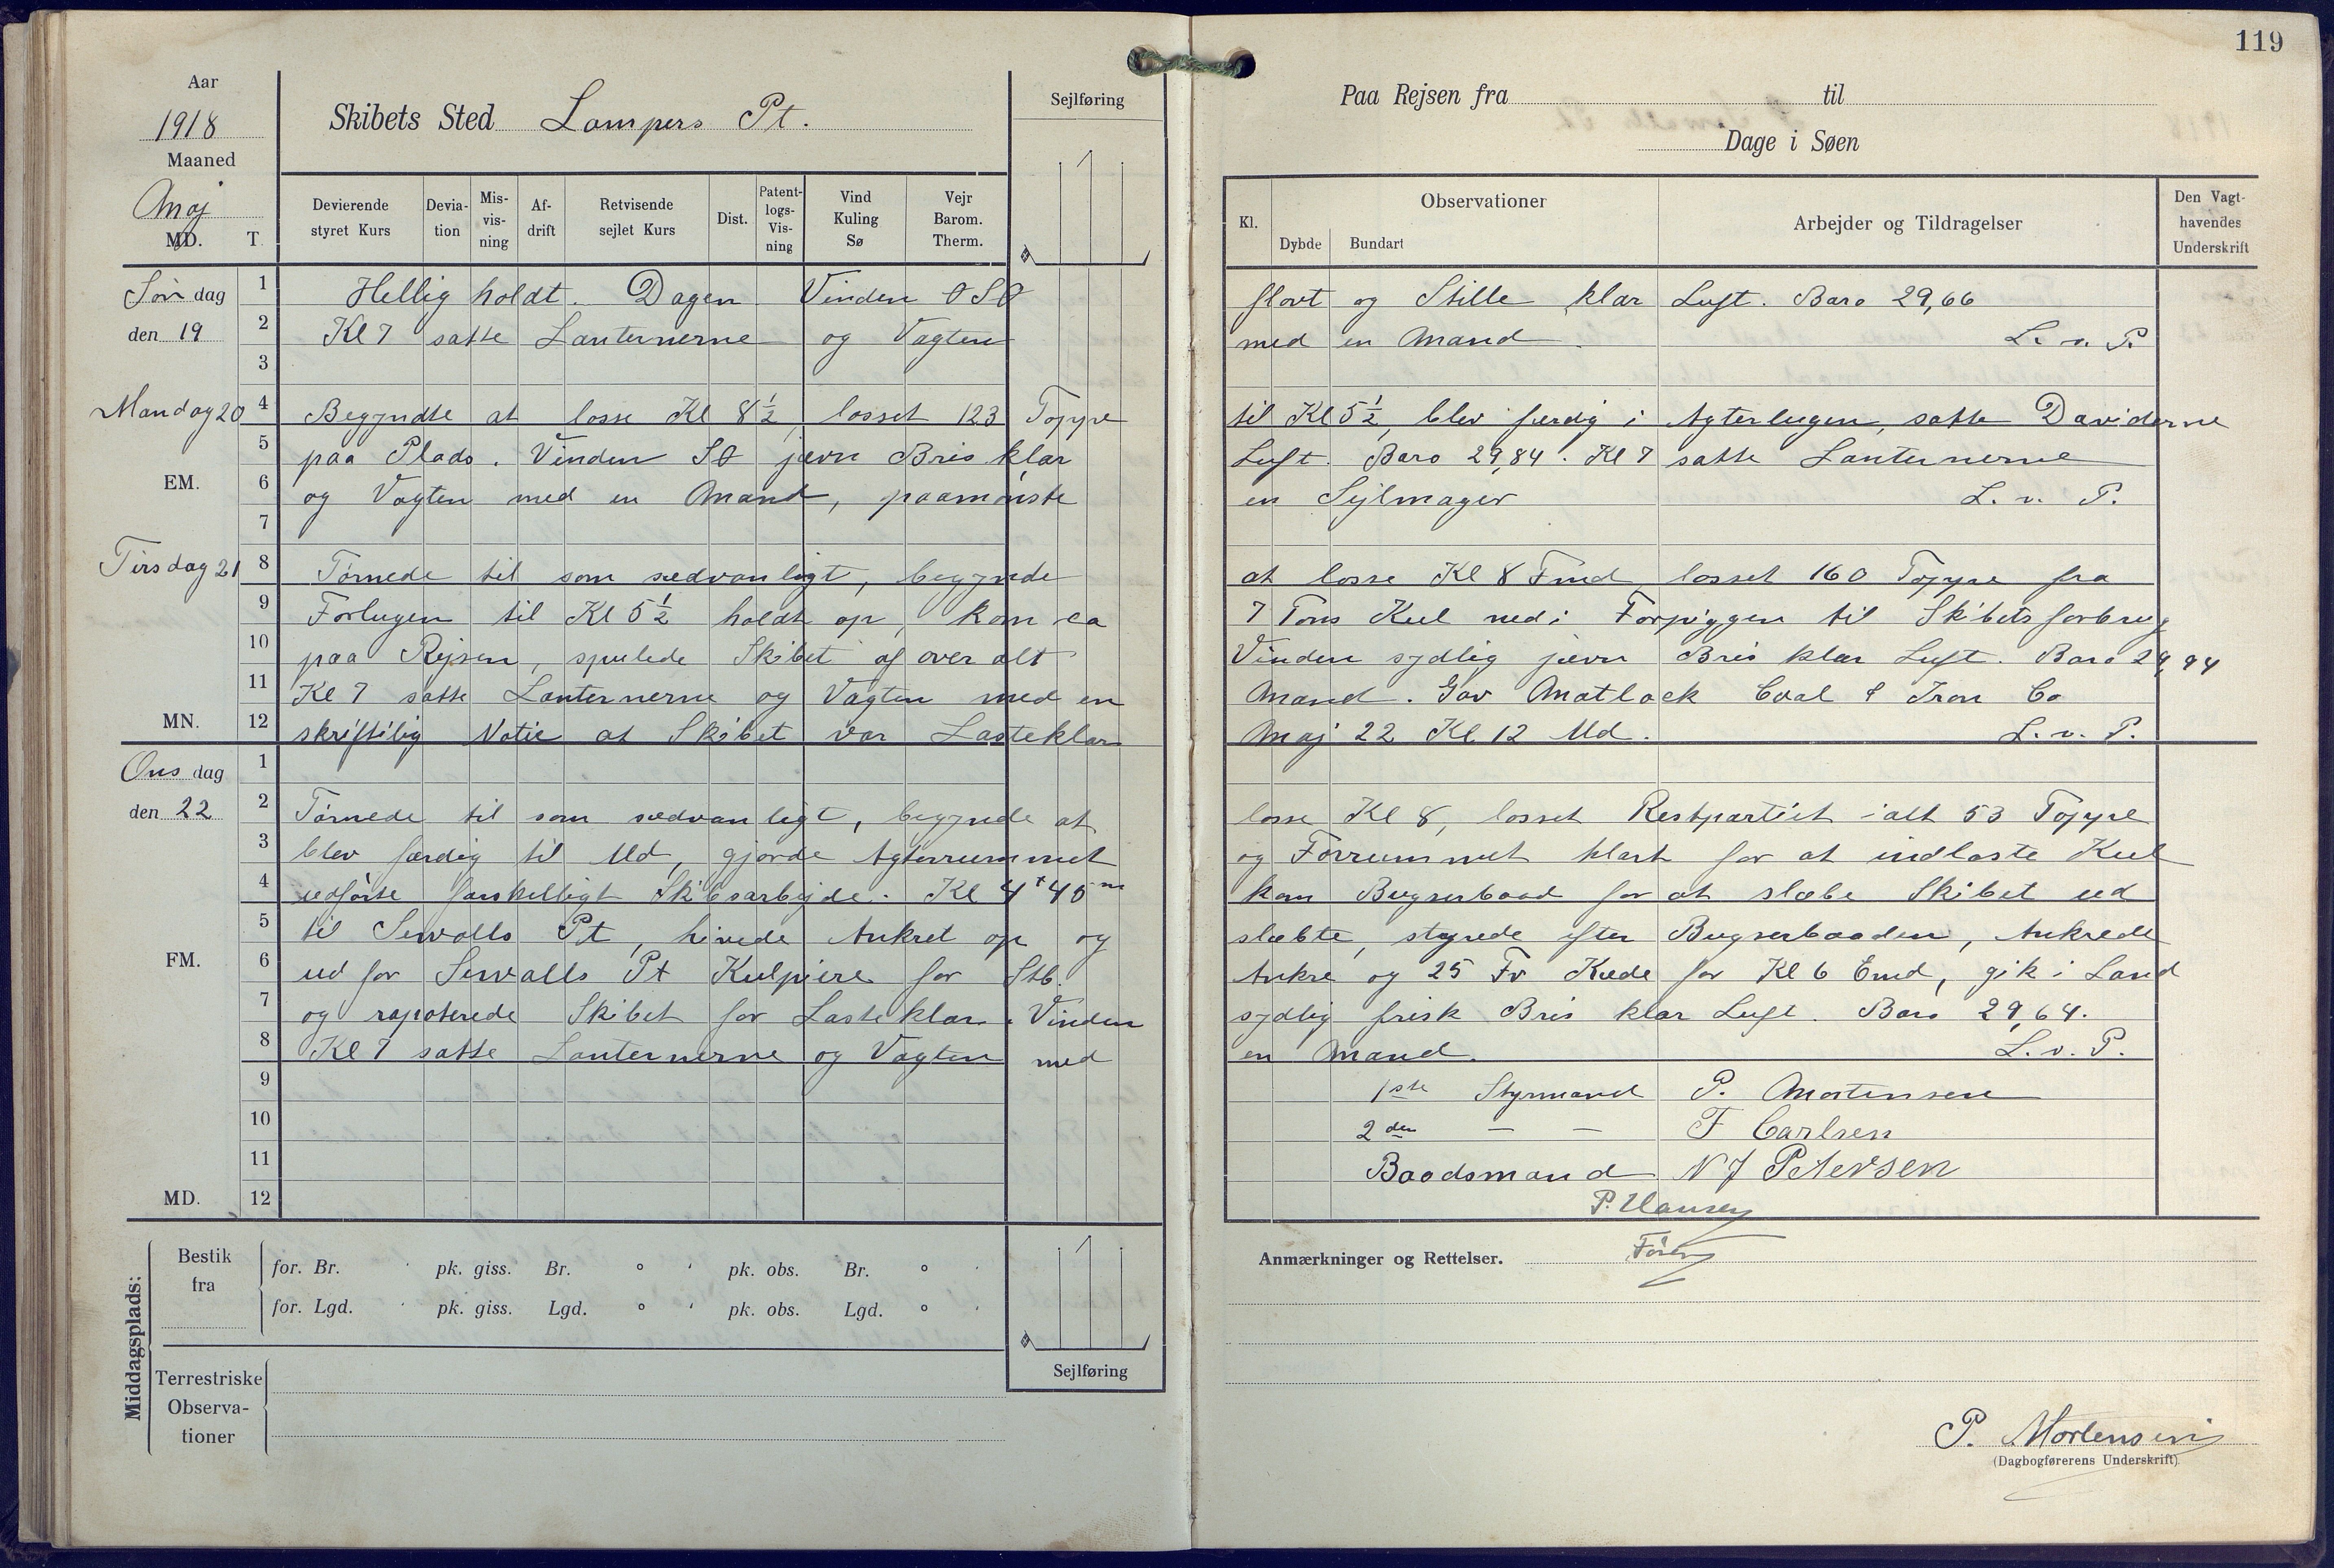 119
Aar
1918
Maaned
Maj
MD. T.
Skibets Sted Lampers Pt.
Sejlføring
Devierende styret Kurs
Devia- tion
Mis- vis- ning
Af- drift
Retvisende sejlet Kurs
Dist.
Patent- logs- Vis- ning
Vind Kuling Sø
Vejr Barom. Therm.
Paa Rejsen fra til
Dage i Søen
Kl.
Observationer
Dybde Bundart
Arbejder og Tildragelser
Den Vagt- havendes Underskrift
Søn dag 1 Hellig holdt. Dagen Vinden OSO flovt og Stille klar Luft. Baro 29,66
den 19 2 Kl 7 satte Lanternerne og Vagten med en Mand. L. v. P.
3
Mandag 20 4 Begyndte at losse Kl 8½, losset 123 Toppe til Kl 5½, blev færdig i Agterlugen, satte Daviderne
5 paa Plads. Vinden SO jævn Bris klar Luft. Baro 29,84. Kl 7 satte Lanternerne
EM. 6 og Vagten med en Mand, paamønste en Sejlmager L. v. P.
7
Tirsdag 21 8 Tørnede til som sædvanligt, begynde at losse Kl 8 Fmd losset 160 Toppe fra
9 Forlugen til Kl 5½ holdt op, kom ca 7 Tons Kul ned i Forpiggen til Skibets forbrug
10 paa Rejsen, spulede Skibet af over alt Vinden sydlig jævn Bris klar Luft. Baro 29,94
11 Kl 7 satte Lanternerne og Vagten med en Mand. Gav Matlack Coal & Iron Co
MN. 12 skriftilig Notic at Skibet var Lasteklar Maj 22 Kl 12 Md. L. v. P.
Ons dag 1
den 22 2 Tørnede til som sædvanligt, begynde at losse Kl 8, losset Restpartiet ialt 53 Toppe
3 blev færdig til Md, gjorde Agterrummet og Forrummet klart for at indlaste Kul
4 udførte forskelligt Skibsarbejde. Kl 4t 40m kom Bugserbaad for at slæbe Skibet ud
5 til Sewalls Pt, hivede Ankret op og slæbte, styrede efter Bugserbaaden, Ankrede
FM. 6 ud for Sewalls Pt Kulpiere for Stb. Ankre og 25 Fv Kæde for Kl 6 Emd, gik i Land
7 og rapoterede Skibet for Lasteklar. Vinden sydlig frisk Bris klar Luft. Baro 29,64.
8 Kl 7 satte Lanternerne og Vagten med en Mand. L. v. P.
9 1ste Styrmand P. Mortensen
10 2den — — F Carlsen
11 Baadsmand N J Petersen
MD. 12 P. Hansen
Fører
Middagsplads:
Bestik fra
for. Br. ' pk. giss. Br. ° ' pk. obs. Br. ° '
for. Lgd. ' pk. giss. Lgd. ° ' pk. obs. Lgd. ° '
Sejlføring
Terrestriske Observa- tioner
Anmærkninger og Rettelser.
P. Mortensen
(Dagbogførerens Underskrift).